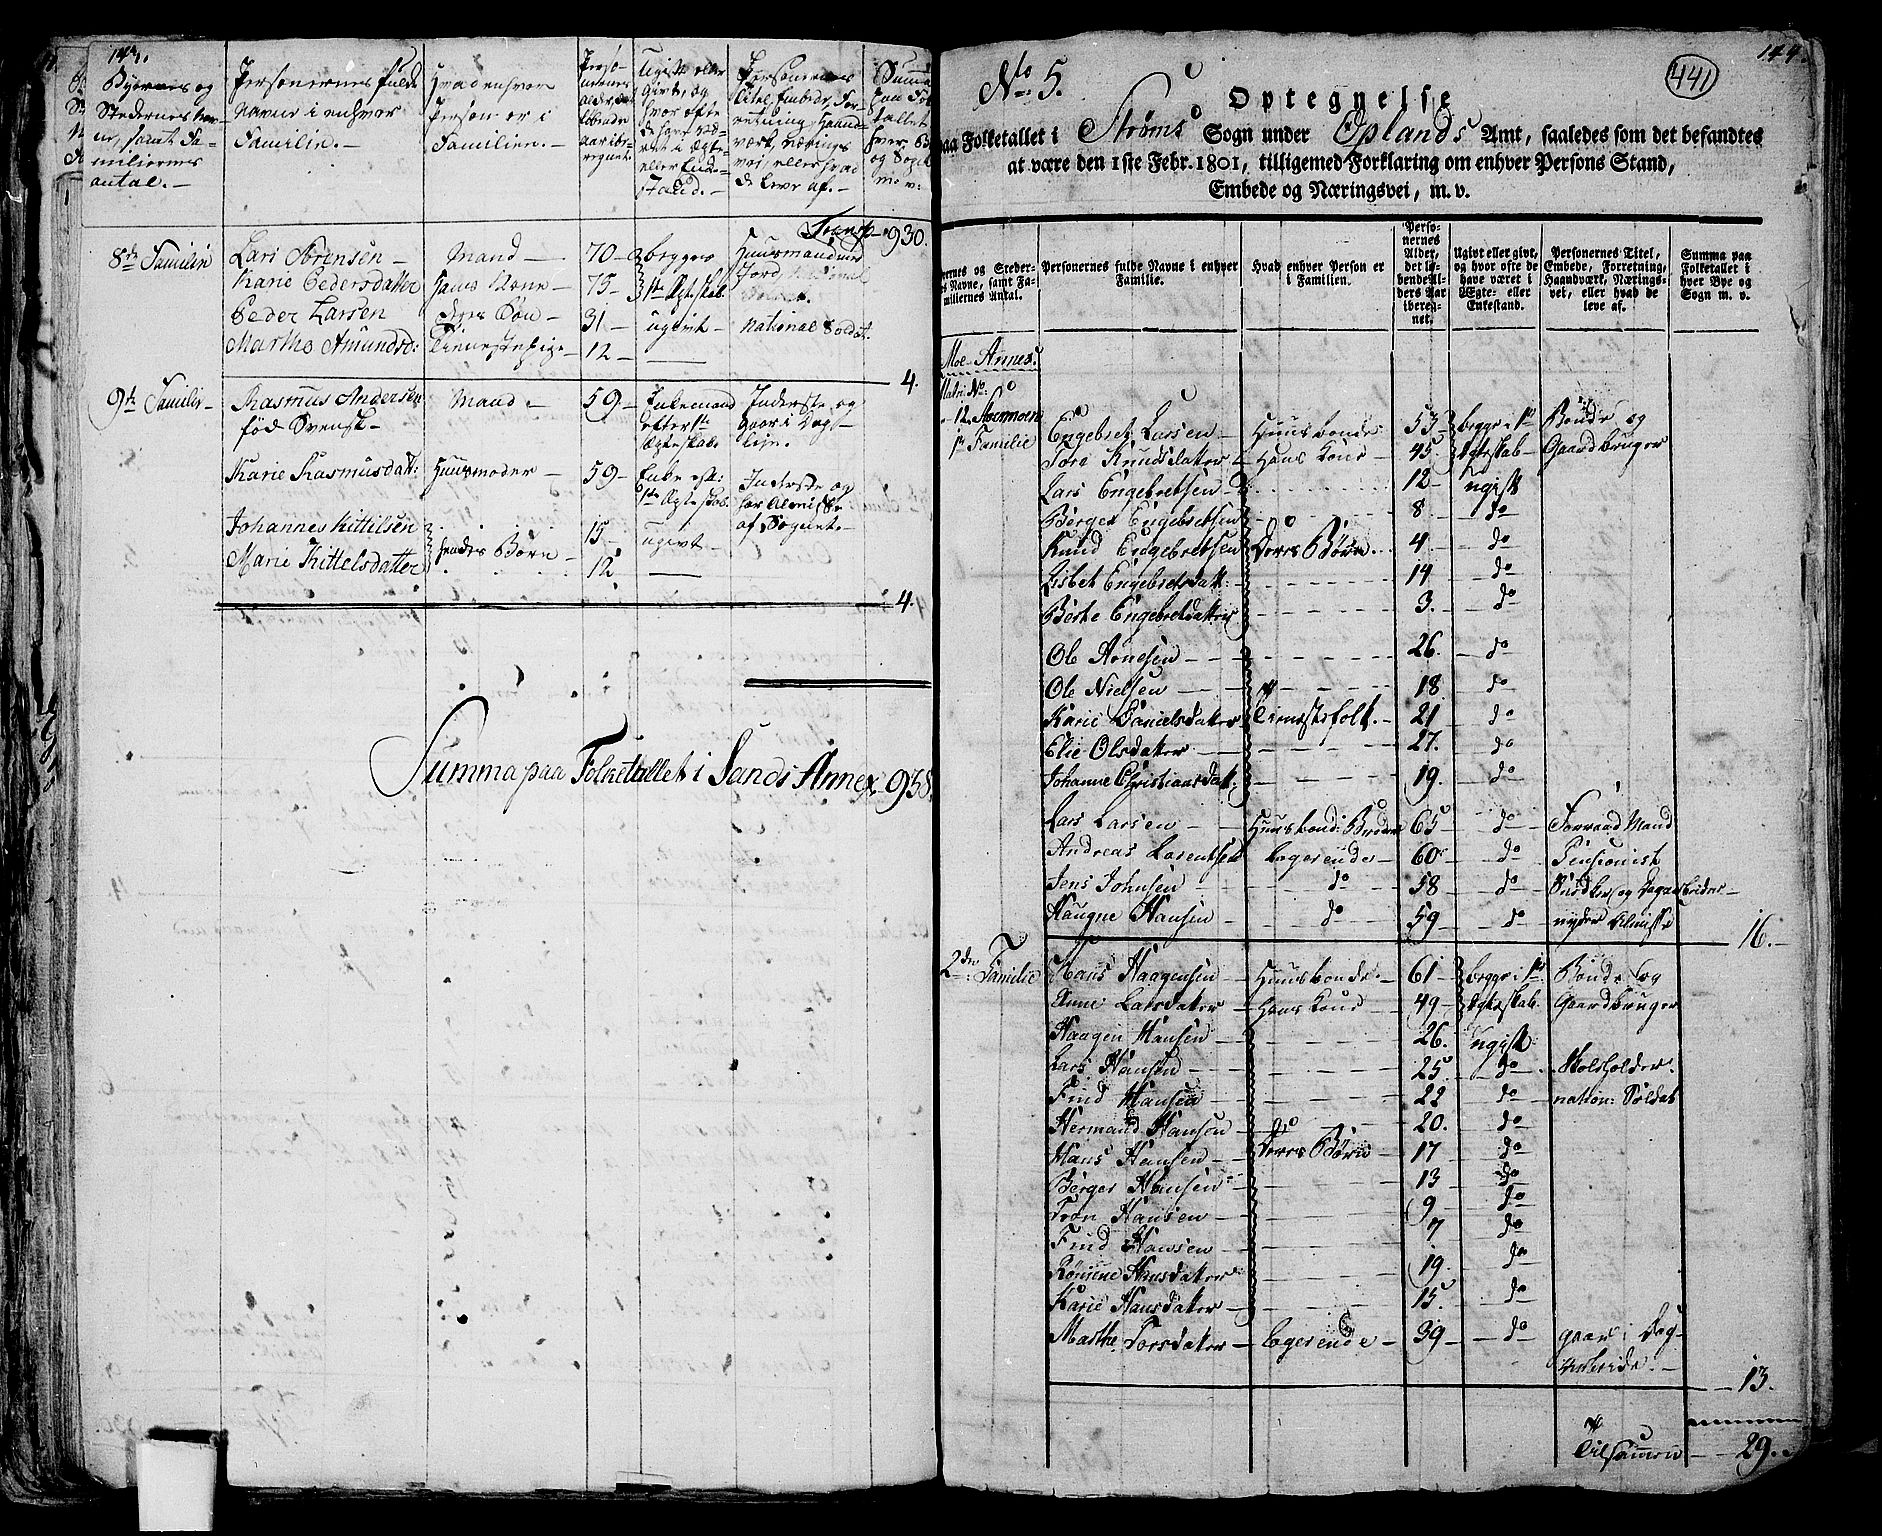 Byernes og Stedernes Navne, samt Familiernes antal. —
Personernes fulde Navne i enhver Familie. —
Hvad enhver Person er i Familien. —
Personernes alder, det løbende aar iberegnet.
Ugift eller Givt, og hvor ofte de have været i Ægte- eller Enke-stand. —
Personernes Titel, Embede, Forretning, Haandværk, Nærings vei, eller hvad de leve af. —
Transp. 930.
8de Familie Lars Sørensen — Mand — 70 — begges Huusmand med
Karie Pedersdatter hans Kone — 75 — 1te Ægteskab. Jord
Peder Larsen deres Søn — 31 — ugivt — National Soldat.
Marthe Amundsd: Tienestepige — 12 — 4.
9de Familie — Rasmus Andersen Mand — 59 — Enkemand Inderste og
fød Svensk — efter 1te gaar i Dag-
Ægteskab leje.
Karie Rasmusdat: Huusmoder — 59 — Enke eft: Inderste og
1te Ægteskab. faar Almisse
Johannes Kittilsen 15 — ugivt af Sognet.
Marie Kittelsdatter hendes Børn — 12 — 4.
Summa paa Folketallet i Sands Annex 938.
144.
441
No 5.
Optegnelse
paa Folketallet i Strøms Sogn under Oplands Amt, saaledes som det befandtes
at være den 1ste Febr. 1801, tilligemed Forklaring om enhver Persons Stand,
Embede og Næringsvei, m. v.
Personernes fulde Navne i enhver Familie.
Hvad enhver Person er i Familien.
Personernes Alder, det løbende Alders Aar iberegnet.
Ugivt eller givt, og hvor ofte de have været i Ægte- eller Enkestand.
Personernes Titel, Embede, Forretning, Haandværk, Næringsvei, eller hvad de leve af.
Summa paa Folketallet i hver Bye og Sogn m. v.
Moe Annex.
Matr: No:
12
1te Familie Engebret Larsen — Huusbonde 53 begge i 1te Bonde og
Tore Knudsdater — Hans Kone — 45 Ægteskab — Gaardbruger
Lars Engebretsen — 12 — ugift
Berger Engebretsen 8 — do
Knud Engebretsen Deres Børn. 4 do
Lisbet Engebretsdatt: 14 — do
Berthe Engebretsdatter 3. — do
Ole Arnesen — 26. — do
Ole Nielsen — 18. — do
Karie Danielsdater Tienestefolk. — 21 — do
Elie Olsdater — 27. — do
Johanne Christiansdatt: 19. — do
Lars Larsen — Huusbond: Broder 65 — do — Forraad Mand
Andreas Larentsen Logerende — 60 — do — Pensionist
Jens Johnsen — do — 58 — do Snedker og Dagarbeider —
Haugne Hansen — do — 59 — do nyder Almisse 16. —
2den Familie Hans Haagensen Huusbonde — 61 — begge i 1te Bonde og
Anne Larsdater — Hans Kone — 49 — Ægteskab. Gaardbruger
Haagen Hansen — 26. Ugift:
Lars Hansen — 25 — do — Skoleholder.
Find Hansen — 22 — do — nation: Soldat
Hermand Hansen — 20. — do
Hans Hansen — Deres Børn — 17 — do
Berger Hansen — 13 — do
Tron Hansen — 9 — do
Find Hansen — 7 — do
Rønnoue Hansdater 19. — do
Karie Hansdater — 15. — do
Marthe Torsdater Logerende — 39 — do — gaar i Dag-
arbeide. — 13.
Tilsammen — 29.